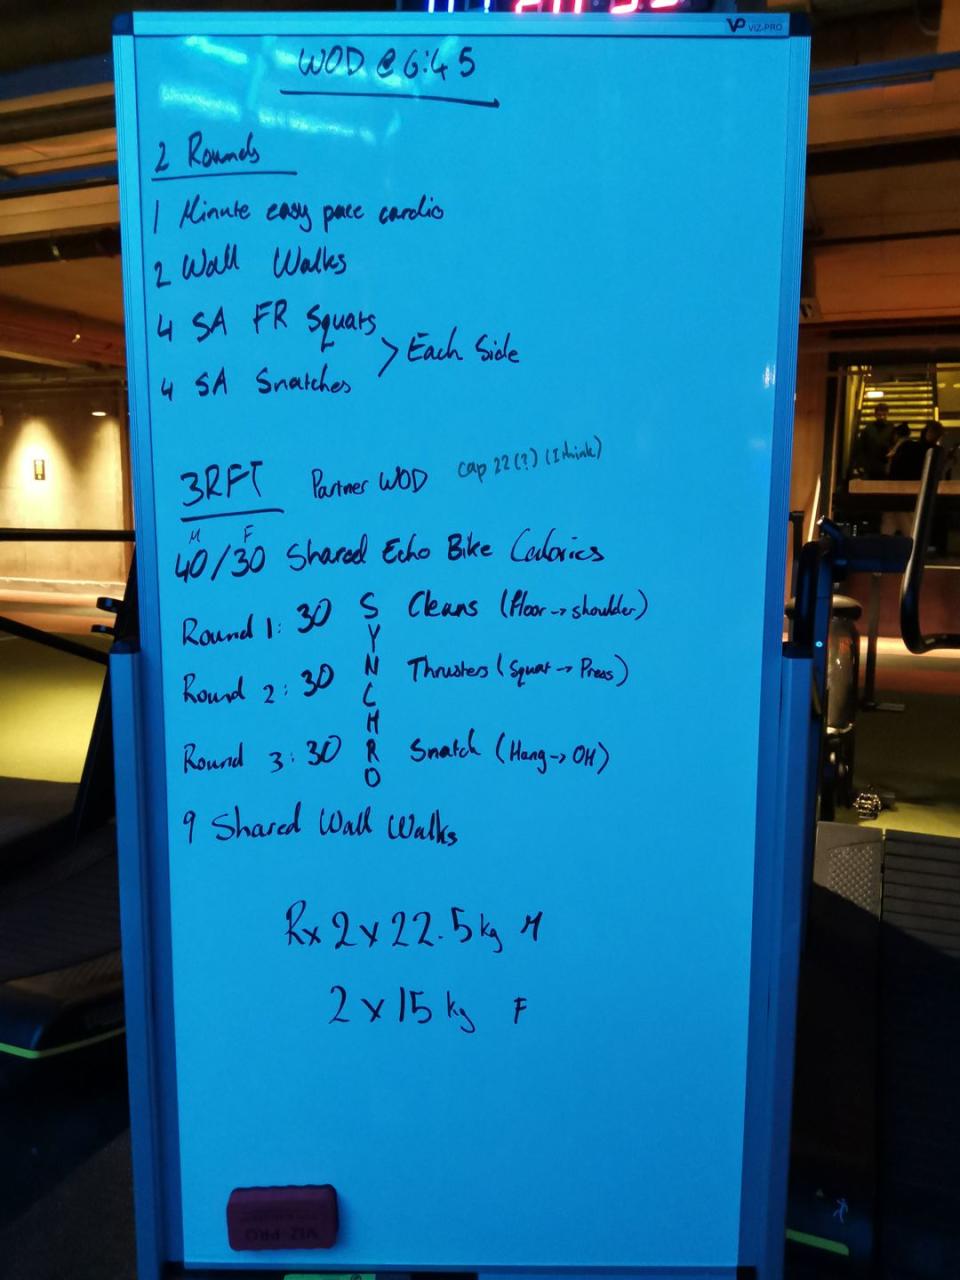 VP VIZ-PRO
WOD @ 6:45
2 Rounds
1 Minute easy pace cardio
2 Wall Walks
4 SA FR Squats
> Each Side
4 SA Snatches
3RFT Partner WOD cap 22(?) (I think)
M F
40/30 Shared Echo Bike Calories
Round 1: 30 Cleans (Floor → shoulder)
Round 2: 30 Thrusters (Squat → Press)
Round 3: 30 Snatch (Hang → OH)
SYNCHRO
9 Shared Wall Walks
Rx 2 x 22.5 kg M
2 x 15 kg F
VIZ-PRO